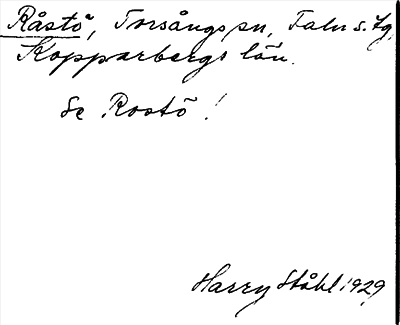 Råstö, Torsångs sn, Falu s. tg,
Kopparbergs län.
Se Rostö!
Harry Ståhl 1929